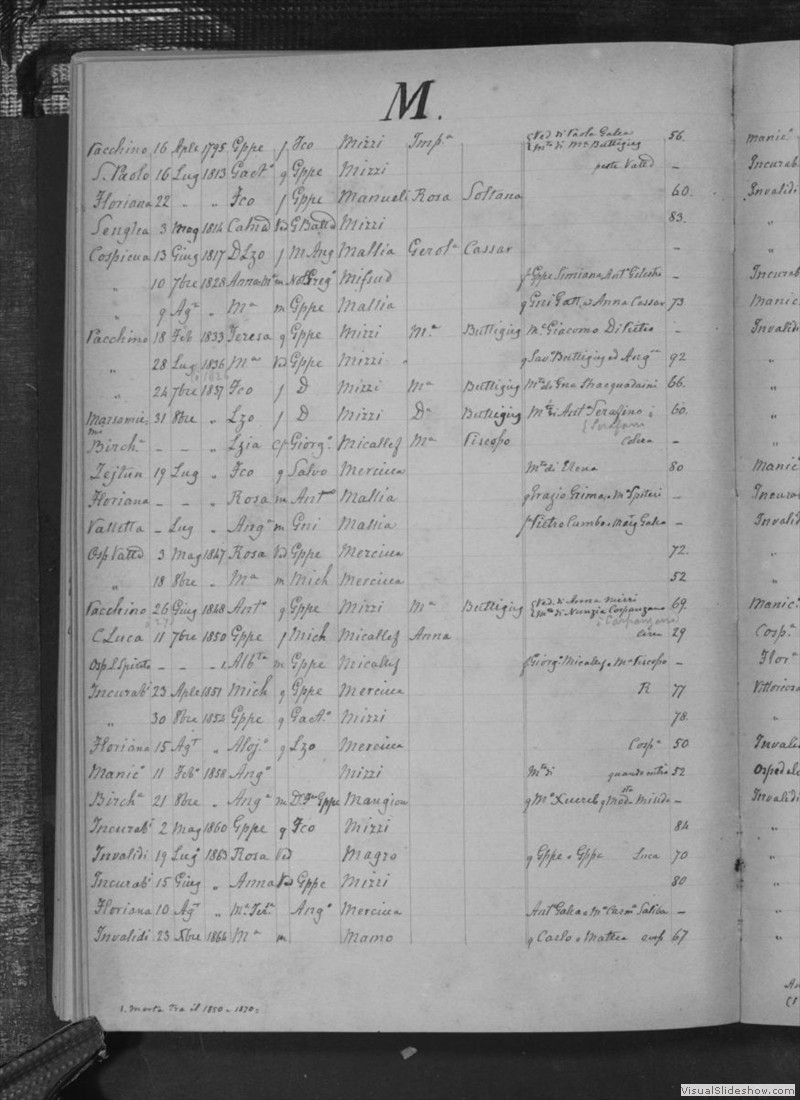 M.
Pacchino 16 Aple 1795 Gppe f Fco Mizzi Imp.a Ved. di Paola Galea 56.
Mto di Ma Buttigieg
S. Paolo 16 Lug 1813 Gaeta q Gppe Mizzi peste Vatta –
Floriana 22 – „ Fco f Gppe Manueli Rosa Soltana 60.
Senglea 3 Mag 1814 Ved GBatta Mizzi 83.
Cospicua 13 Giug 1817 D Lzo f M Ang Mallia Gerola Cassar –
„ 10 7bre 1828 Anna m Not Greg° Mifsud f Gppe Simiana –
„ 9 Aga „ Ma m Gppe Mallia q Gni Gatt ed Anna Cassar 73
Pacchino 18 Feb 1833 Teresa q Gppe Mizzi M.a Buttigieg Ma Giacomo Di Pietro –
„ 28 Lug 1836 Ma Ved Gppe Mizzi q Sav Buttigieg ed Anga 92
„ 24 7bre 1837 Fco f D Mizzi Ma Buttigieg Mto di Ena 66.
31 8bre „ Lzo f D Mizzi Da Buttigieg Mto di Anta Serafino 60.
Birch.a – – „ Lzia Giorg° Micallef Ma Piscopo –
Zejtun 19 Lug „ Fco q Salvo Mercieca Mto di Elena 80
Floriana – – „ Rosa m Ant° Mallia q Grazio Grima e Ma Spiteri –
Valletta – Lug „ Anga m Gni Mallia f Pietro Cumbo e Galea –
Osp Vatta 3 Mag 1847 Rosa Ved Gppe Mercieca 72.
„ 18 8bre „ Ma m Mich Mercieca 52
Pacchino 26 Giug 1848 Anta q Gppe Mizzi Ma Buttigieg Ved. di Anna Mizzi 69.
Mto di Nunzia Carpanzano
C. Luca 11 7bre 1850 Gppe f Mich Micallef Anna circa 29
Osp S Spirito – – – 1 Albta m Gppe Micallef f Giorg° Micallef e Ma Piscopo –
Incurabi 23 Aple 1851 Mich q Gppe Mercieca R 77
„ 30 8bre 1854 Gppe q Gaet° Mizzi 78.
Floriana 15 Agt „ Aloj.a q Lzo Mercieca Cospa 50
Manic° 11 Feb° 1858 Anga Mizzi Mta di quando entrò 52
Birch.a 21 8bre „ Anga m Gppe Mangion q Ma Xuereb –
Incurabi 2 Mag 1860 Gppe q Fco Mizzi 84
Invalidi 19 Lug 1863 Rosa Ved Magro q Gppe e Gppa Luca 70
Incurabi 15 Giug „ Anna Ved Gppe Mizzi 80
Floriana 10 Agt „ Ma Tera Ang° Mercieca Anto Galea e Ma Carma Saliba –
Invalidi 23 Xbre 1864 Ma m Mamo q Carlo e Mattea cosp 67
1. Morta tra il 1850 – 1870:
Manic°
Incurab
Invalidi
„
„
Incurab
Manic
Invalidi
„
„
„
Manic°
Incurab
Invalidi
„
„
Manic°
Cospa
Flora
Vittoriosa
„
Invali
Ospedale
Invalidi
„
„
„
„
„
VisualSlideshow.com